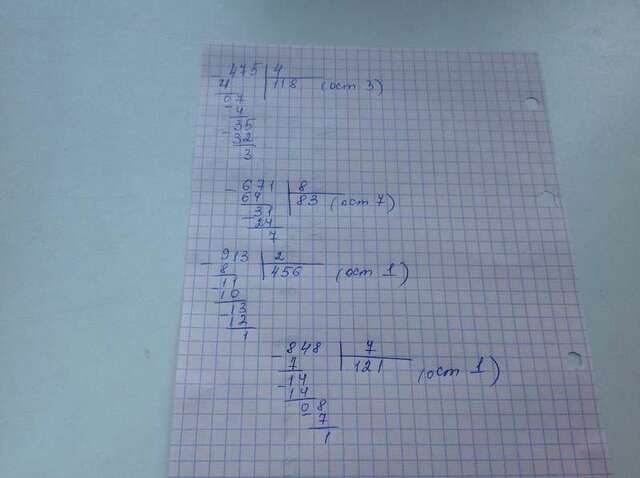 - 475 | 4
4 118 (ост 3)
07
- 4
35
- 32
3
- 671 | 8
64 83 (ост 7)
- 31
24
7
- 913 | 2
8 456 (ост 1)
- 11
10
- 13
12
1
- 848 | 7
7 121 (ост 1)
- 14
14
08
- 7
1